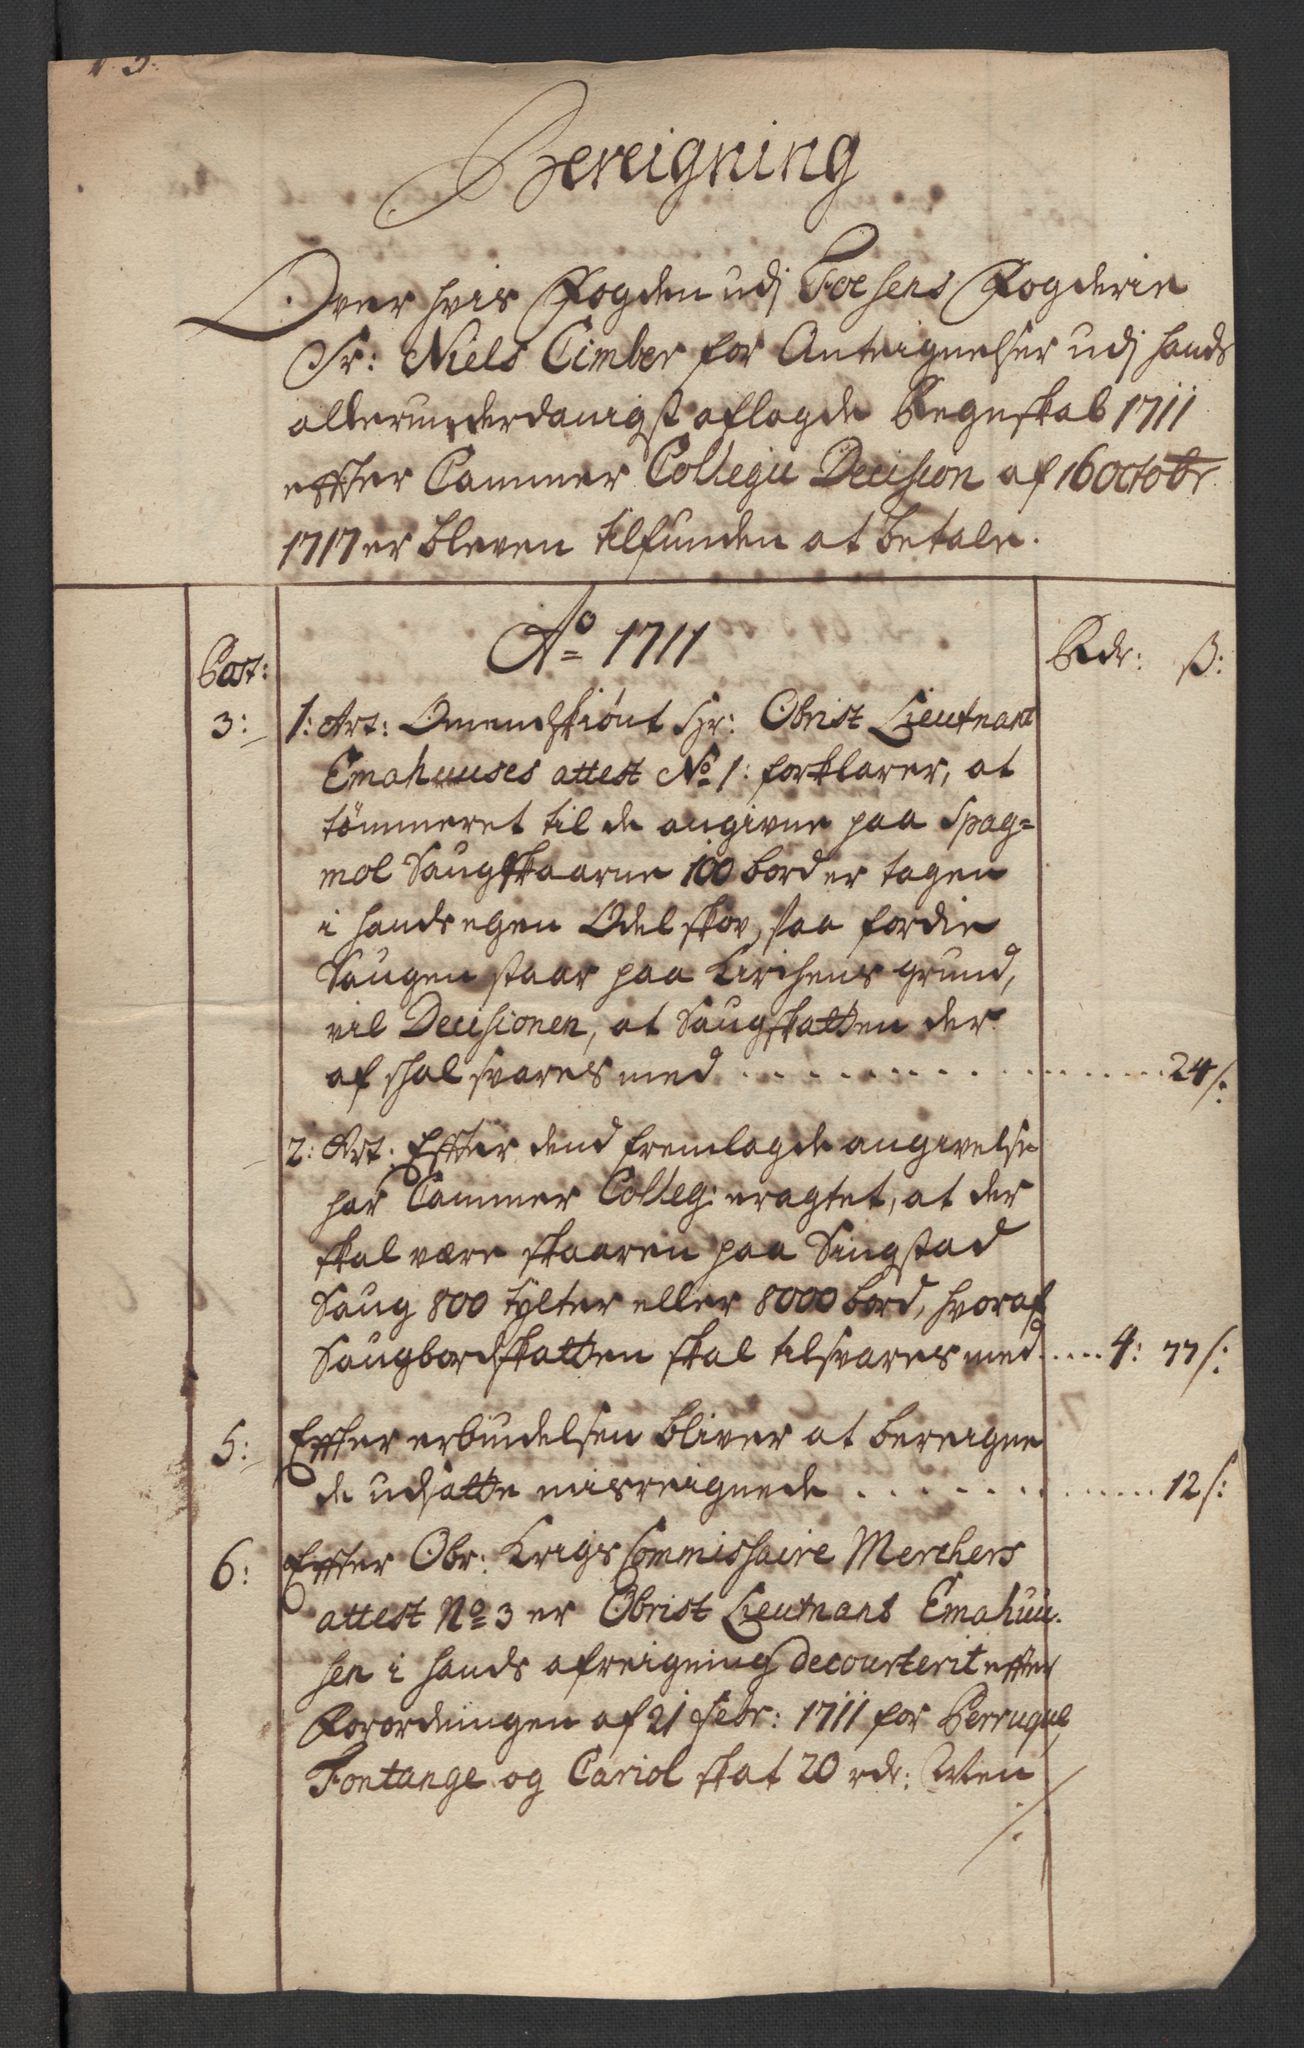 Bereigning
Over hvis Fogden udj Foesens Fogderie
Sr: Niels Cimber for Anteignelser udj hands
allerunderdanigst aflagde Regnskab 1711
effter Cammer Collegii Decision af 16 Octobr
1717 er bleven tilfunden at betale.
Ao 1711
Post: Rdr: ß:
3: 1: Art: Omendskiønt Hr: Obrist Lieutnant
Emahuuses attest No 1: forklarer, at
tömmeret til de angivne paa Spag=
mol Saug skaarne 100 bord er tagen
i hands egen Odel skov, saa fordie
Saugen staar paa Kirchens grund,
vil Decisionen, at Saugskatten der
af skal svares med . . . . . . . . . . . . . 24 s:
2: Art: Effter dend fremlagde angivelse
har Cammer Colleg: eragtet, at der
skal være skaaren paa Singstad
Saug 800 tylter eller 8000 bord, hvoraf
Saugbordskatten skal tilsvares med . . . . . 4: 77 s:
5: Effter erbiudelsen bliver at bereigne
de udsatte misreignede . . . . . . . . . . . 12 s:
6: Effter Obr: Krigs Commissaire Merchers
attest No 3 er Obrist Lieutnant Emahuu-
sen i hands afreigning decourterit effter
Forordningen af 21 Febr: 1711 for Perruque
Fontange og Cariol skat 20 rdr: Men